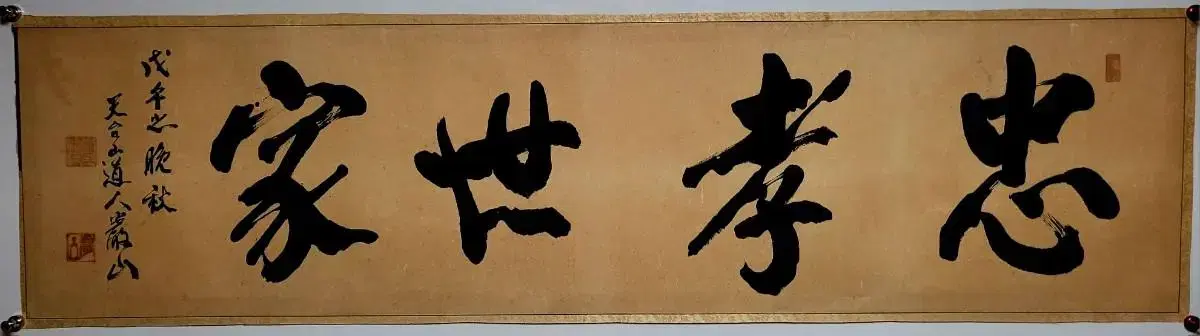 忠孝世家
戊午之晚秋
天台山道人巖山